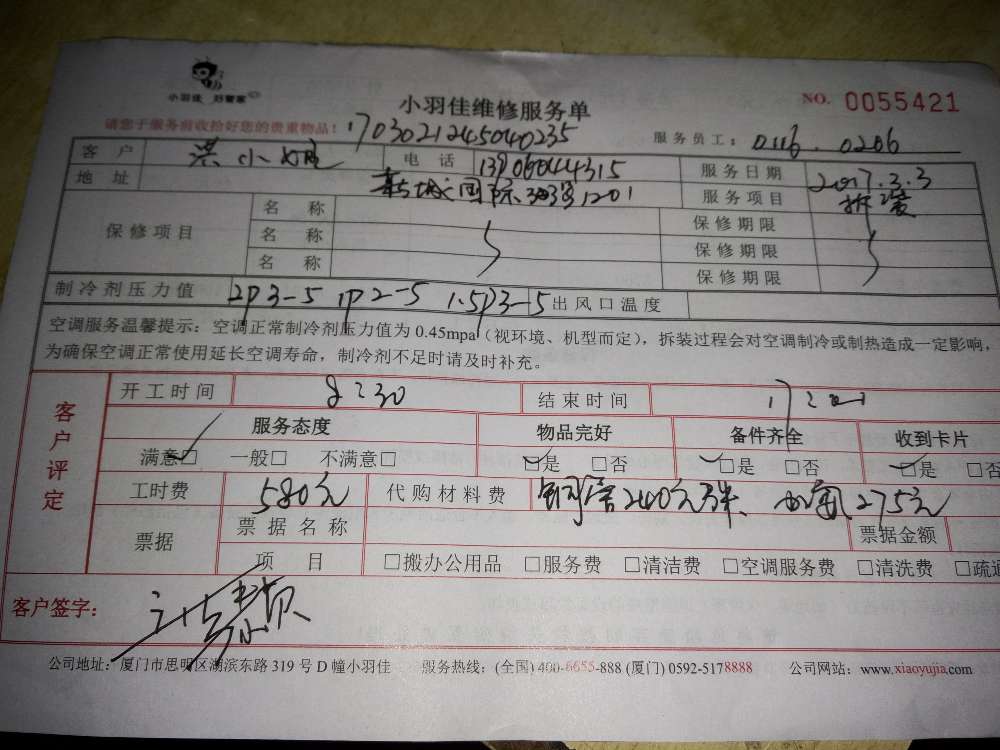 小羽佳 好管家
小羽佳维修服务单
NO. 0055421
请您于服务前收拾好您的贵重物品！
1703021245040235
服务员工：0116 . 0206
客 户 洪小 电 话 13906044315 服务日期 2017.3.3
地 址 国际 1201 服务项目 拆装
保修项目 名 称 保修期限
名 称 保修期限
名 称 保修期限
制冷剂压力值 2P3-5 1P2-5 1.5P3-5 出风口温度
空调服务温馨提示：空调正常制冷剂压力值为 0.45mpa（视环境、机型而定），拆装过程会对空调制冷或制热造成一定影响，
为确保空调正常使用延长空调寿命，制冷剂不足时请及时补充。
客户评定
开工时间 8:30 结束时间
服务态度 物品完好 备件齐全 收到卡片
满意□ 一般□ 不满意□ □是 □否 □是 □否 □是 □否
工时费 580元 代购材料费 铜管240元3米、加氟275元
票据 票据名称 票据金额
项 目 □搬办公用品 □服务费 □清洁费 □空调服务费 □清洗费 □疏通
客户签字：
公司地址：厦门市思明区湖滨东路 319 号 D 幢小羽佳 服务热线：(全国) 400-6655-888 (厦门) 0592-5178888 公司网站：www.xiaoyujia.com